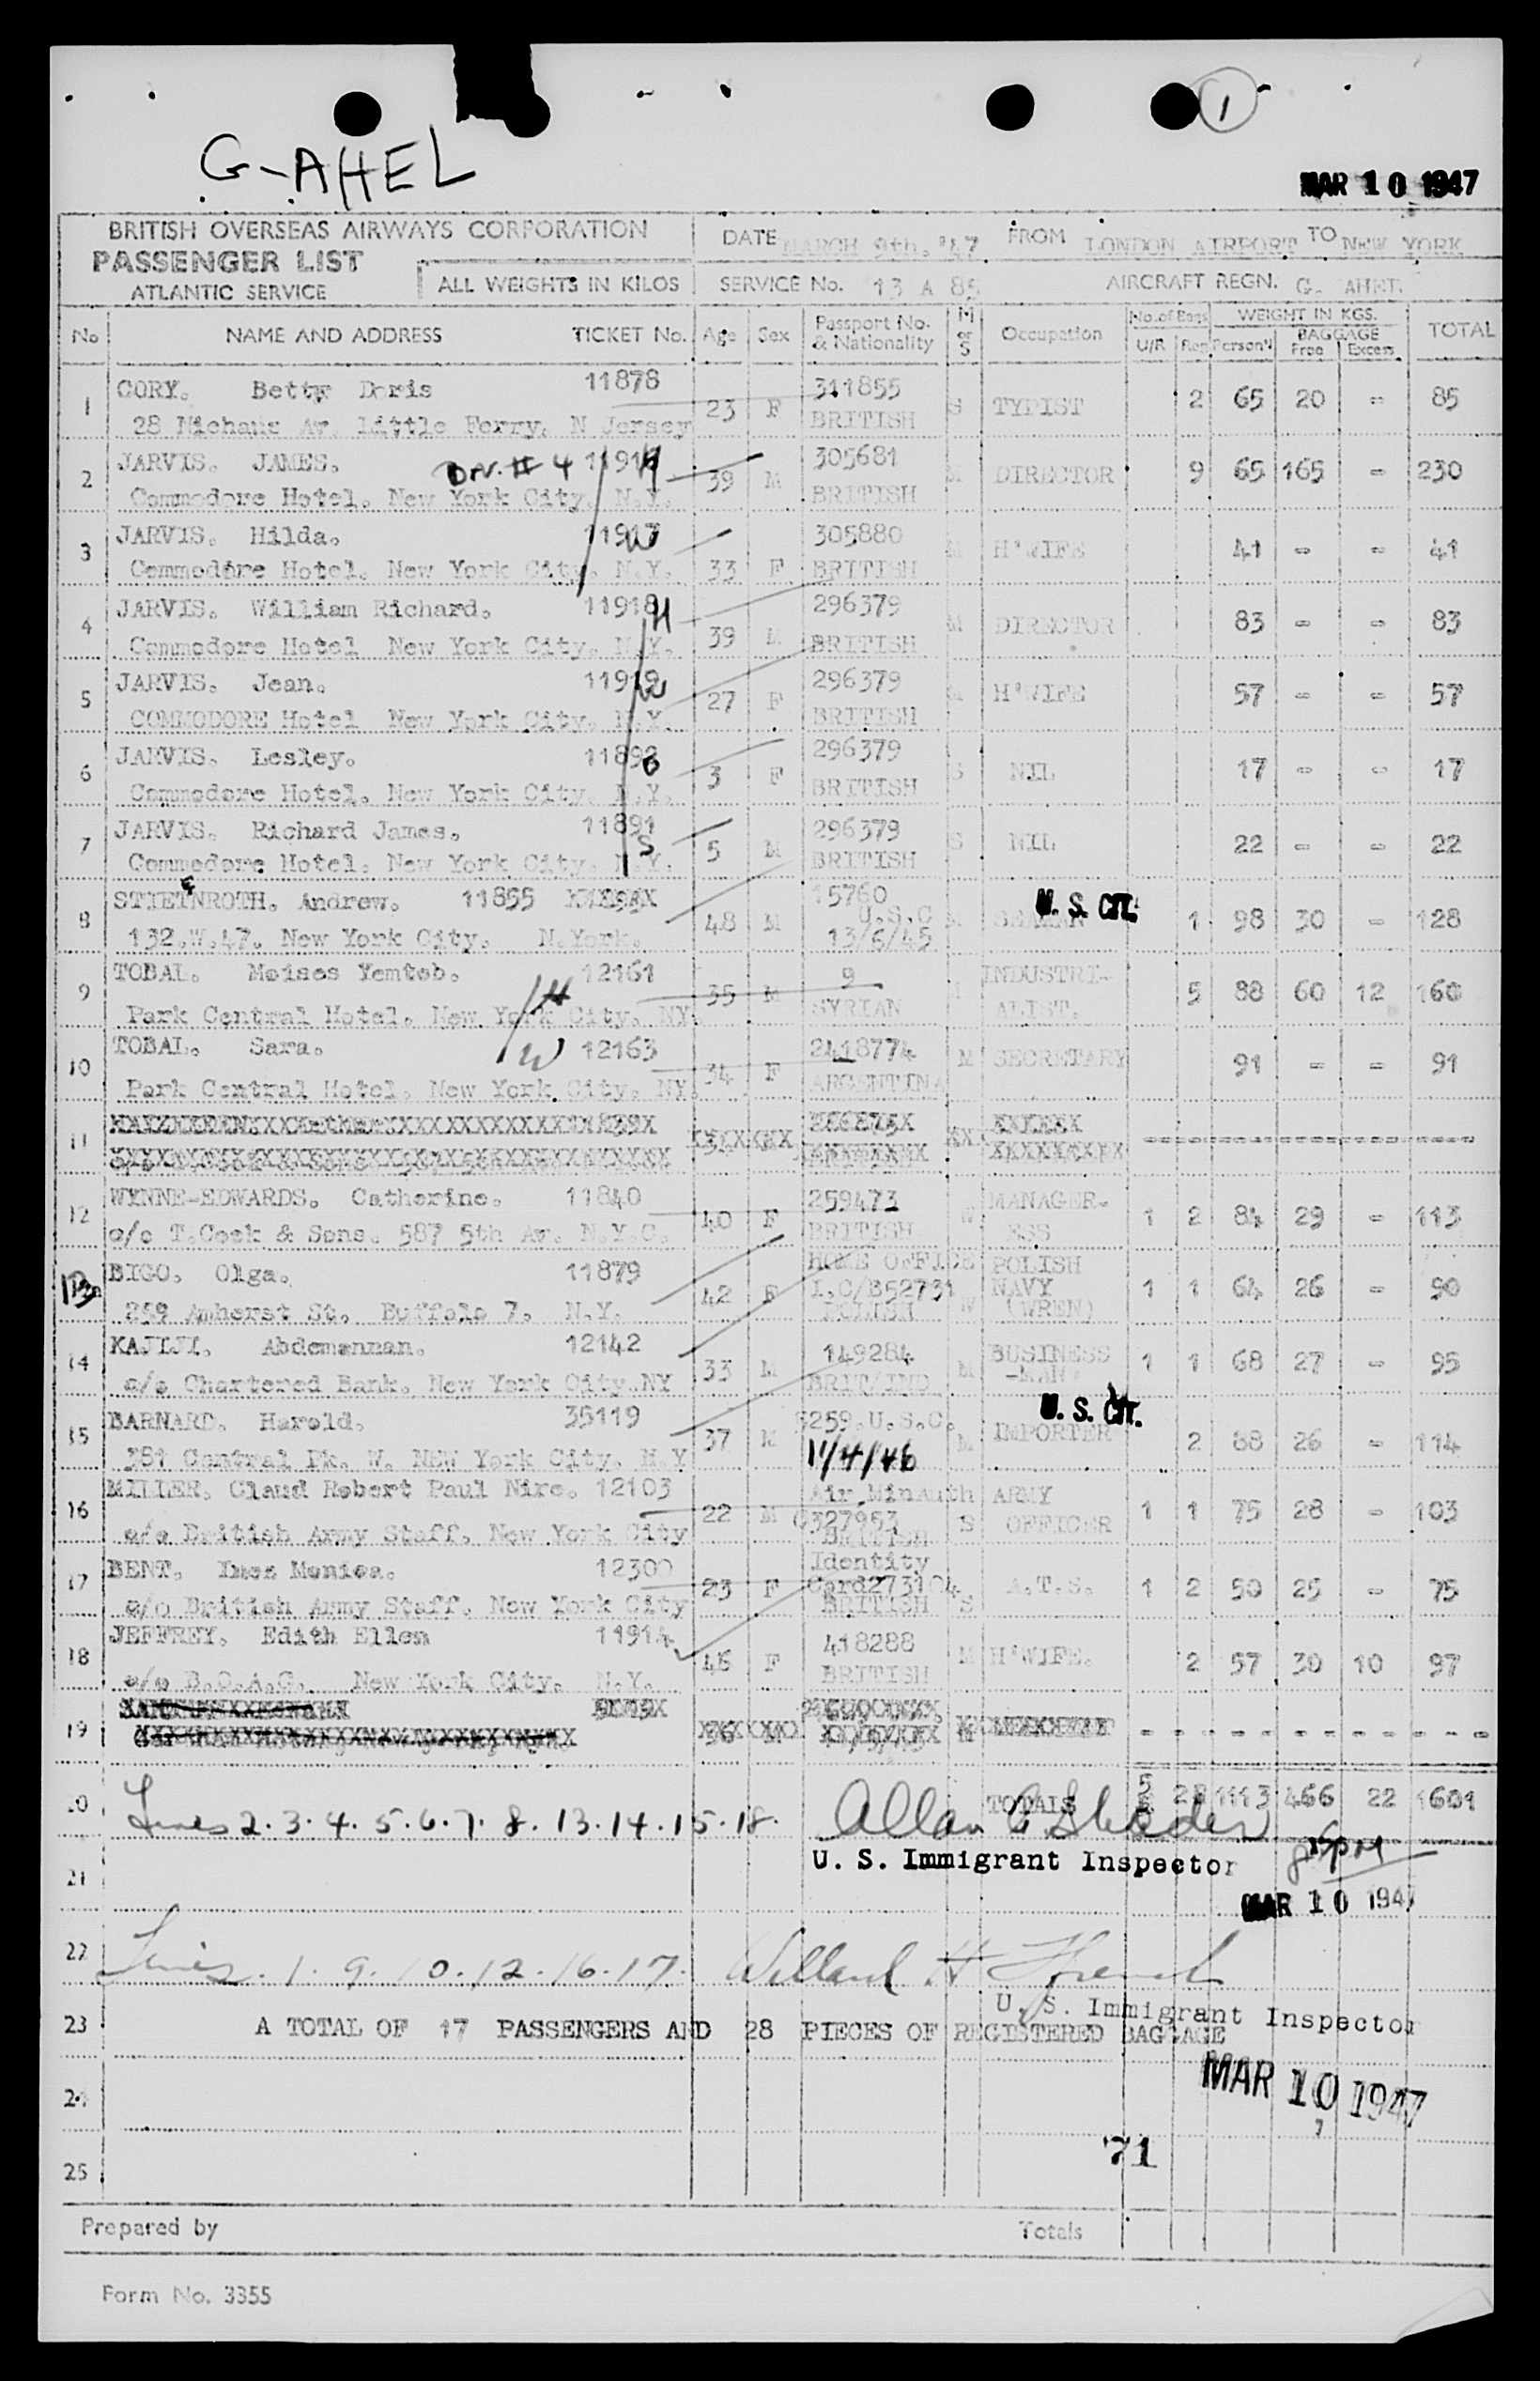 1
G-AHEL
MAR 10 1947
BRITISH OVERSEAS AIRWAYS CORPORATION
PASSENGER LIST
ATLANTIC SERVICE
ALL WEIGHTS IN KILOS
DATE MARCH 9th. '47 FROM LONDON AIRPORT TO NEW YORK
SERVICE No. 13 A 85 AIRCRAFT REGN. G. AHEL
No NAME AND ADDRESS TICKET No. Age Sex Passport No. & Nationality M or S Occupation No. of Bags U/R Reg WEIGHT IN KGS. Person'l BAGGAGE Free Excess TOTAL
1 CORY. Betty Doris 11878 23 F 311855 S TYPIST 2 65 20 - 85
28 Niehaus Av. Little Ferry. N Jersey BRITISH
2 JARVIS. JAMES. Div. # 4 11916 H 39 M 305681 M DIRECTOR 9 65 165 - 230
Commodore Hotel. New York City. N.Y. BRITISH
3 JARVIS. Hilda. 11917 W 33 F 305880 M H'WIFE 41 - - 41
Commodore Hotel. New York City. N.Y. BRITISH
4 JARVIS. William Richard. 11918 H 39 M 296379 M DIRECTOR 83 - - 83
Commodore Hotel New York City. N.Y. BRITISH
5 JARVIS. Jean. 11919 W 27 F 296379 M H'WIFE 57 - - 57
COMMODORE Hotel New York City. N.Y. BRITISH
6 JARVIS. Lesley. 11892 3 F 296379 S NIL 17 - - 17
Commodore Hotel. New York City. N.Y. BRITISH
7 JARVIS. Richard James. 11891 S 5 M 296379 S NIL 22 - - 22
Commodore Hotel. New York City. N.Y. BRITISH
8 Andrew. 11855 48 M 15760 M SEAMAN U. S. CIT. 1 98 30 - 128
132.W.47. New York City. N.York. U.S.C 13/6/45
9 TOBAL. Moises Yemtob. 12161 H 35 M 9 INDUSTRI- 5 88 60 12 160
Park Central Hotel. New York City. NY. SYRIAN ALIST.
10 TOBAL. Sara. W 12163 34 F 2418774 M SECRETARY 91 - - 91
Park Central Hotel. New York City. NY. ARGENTINA
11
12 WYNNE-EDWARDS. Catherine. 11840 40 F 259473 W MANAGER- 1 2 84 29 - 113
c/o T.Cook & Sons. 587 5th Av. N.Y.C. BRITISH ESS
13 BIGO. Olga. 11879 42 F HOME OFFICE W POLISH 1 1 64 26 - 90
259 Amherst St. Buffalo 7. N.Y. I.C/B52731 POLISH NAVY (WREN)
14 KAJIJI. Abdemannan. 12142 33 M 149284 M BUSINESS 1 1 68 27 - 95
c/o Chartered Bank. New York City.NY BRIT/IND -MAN
15 BARNARD. Harold. 35119 37 M 5259.U.S.C. M IMPORTER U. S. CIT. 2 88 26 - 114
381 Central Pk. W. NEW York City. N.Y 11/4/46
16 MILLER. Claud Robert Paul Nire. 12103 22 M Air.MinAuth S ARMY 1 1 75 28 - 103
c/o British Army Staff. New York City 327953 BRITISH OFFICER
17 BENT. Inez Monica. 12300 23 F Identity S A.T.S. 1 2 50 25 - 75
c/o British Army Staff. New York City Card273104 BRITISH
18 JEFFREY. Edith Ellen 11914 46 F 418288 M H'WIFE. 2 57 30 10 97
c/o B.O.A.C. New York City. N.Y. BRITISH
19
20 Lines 2. 3. 4. 5. 6. 7. 8. 13. 14. 15. 18. TOTALS 5 28 1113 466 22 1601
U. S. Immigrant Inspector
21 MAR 10 1947
22 Lines. 1. 9. 10. 12. 16. 17. Willard H French
U. S. Immigrant Inspector
23 A TOTAL OF 17 PASSENGERS AND 28 PIECES OF REGISTERED BAGGAGE
MAR 10 1947
24
71
25
Prepared by Totals
Form No. 3355